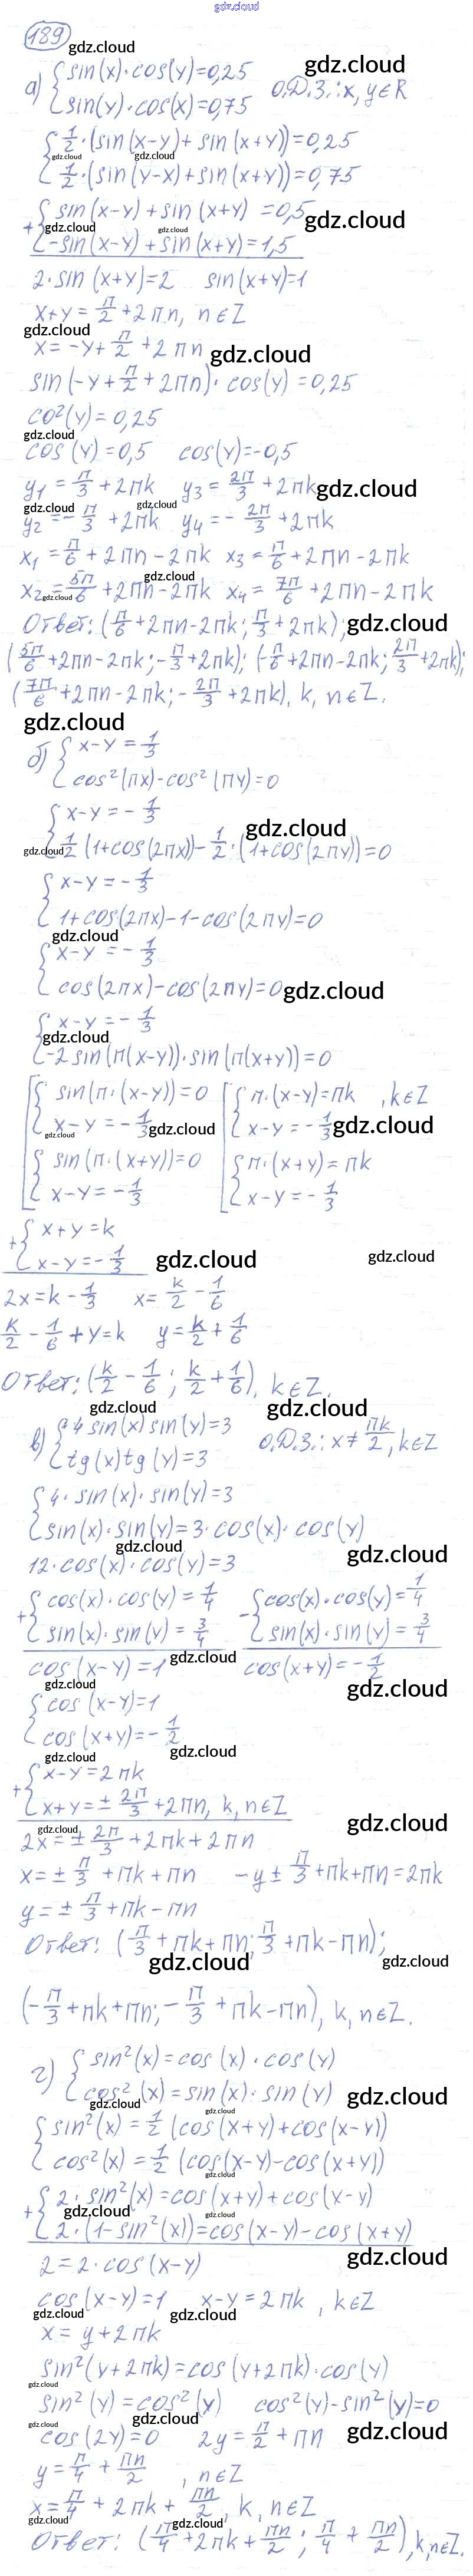 gdz.cloud
189
gdz.cloud
а) { sin(x)·cos(y)=0,25
sin(y)·cos(x)=0,75 О.Д.З.: x, y∈R
gdz.cloud
{ 1/2·(sin(x-y)+sin(x+y))=0,25
gdz.cloud gdz.cloud
1/2·(sin(y-x)+sin(x+y))=0,75
+{ sin(x-y)+sin(x+y)=0,5
gdz.cloud gdz.cloud gdz.cloud
-sin(x-y)+sin(x+y)=1,5
2·sin(x+y)=2 sin(x+y)=1
x+y=π/2+2πn, n∈Z
gdz.cloud
x=-y+π/2+2πn
gdz.cloud
sin(-y+π/2+2πn)·cos(y)=0,25
co²(y)=0,25
gdz.cloud
cos(y)=0,5 cos(y)=-0,5
y₁=π/3+2πk y₃=2π/3+2πk
gdz.cloud
gdz.cloud gdz.cloud
y₂=-π/3+2πk y₄=-2π/3+2πk
x₁=π/6+2πn-2πk x₃=π/6+2πn-2πk
gdz.cloud
x₂=5π/6+2πn-2πk x₄=7π/6+2πn-2πk
gdz.cloud
Ответ: (π/6+2πn-2πk; π/3+2πk);
gdz.cloud
(5π/6+2πn-2πk; -π/3+2πk); (-π/6+2πn-2πk; 2π/3+2πk);
(7π/6+2πn-2πk; -2π/3+2πk), k, n∈Z.
gdz.cloud
б) { x-y=1/3
cos²(πx)-cos²(πy)=0
{ x-y=-1/3
gdz.cloud
1/2(1+cos(2πx))-1/2·(1+cos(2πy))=0
gdz.cloud
{ x-y=-1/3
1+cos(2πx)-1-cos(2πy)=0
gdz.cloud
{ x-y=-1/3
cos(2πx)-cos(2πy)=0
gdz.cloud
{ x-y=-1/3
gdz.cloud
-2sin(π(x-y))·sin(π(x+y))=0
[ { sin(π·(x-y))=0 [ { π·(x-y)=πk , k∈Z
x-y=-1/3 x-y=-1/3
gdz.cloud gdz.cloud gdz.cloud
{ sin(π·(x+y))=0 { π·(x+y)=πk
x-y=-1/3 x-y=-1/3
+{ x+y=k
x-y=-1/3
gdz.cloud gdz.cloud
2x=k-1/3 x=k/2-1/6
k/2-1/6+y=k y=k/2+1/6
Ответ: (k/2-1/6; k/2+1/6), k∈Z.
gdz.cloud gdz.cloud
в) { 4sin(x)sin(y)=3
tg(x)tg(y)=3 О.Д.З.: x≠πk/2, k∈Z
{ 4·sin(x)·sin(y)=3
sin(x)·sin(y)=3·cos(x)·cos(y)
gdz.cloud gdz.cloud
12·cos(x)·cos(y)=3
+{ cos(x)·cos(y)=1/4 -{ cos(x)·cos(y)=1/4
sin(x)·sin(y)=3/4 sin(x)·sin(y)=3/4
gdz.cloud
cos(x-y)=1 cos(x+y)=-1/2
gdz.cloud gdz.cloud
{ cos(x-y)=1
cos(x+y)=-1/2
gdz.cloud gdz.cloud
+{ x-y=2πk
x+y=±2π/3+2πn, k, n∈Z
gdz.cloud gdz.cloud
2x=±2π/3+2πk+2πn
x=±π/3+πk+πn -y±π/3+πk+πn=2πk
y=±π/3+πk-πn
Ответ: (π/3+πk+πn; π/3+πk-πn);
gdz.cloud gdz.cloud
(-π/3+πk+πn; -π/3+πk-πn), k, n∈Z.
г) { sin²(x)=cos(x)·cos(y)
cos²(x)=sin(x)·sin(y)
gdz.cloud gdz.cloud gdz.cloud
{ sin²(x)=1/2(cos(x+y)+cos(x-y))
cos²(x)=1/2(cos(x-y)-cos(x+y))
gdz.cloud
+{ 2·sin²(x)=cos(x+y)+cos(x-y)
gdz.cloud gdz.cloud
2·(1-sin²(x))=cos(x-y)-cos(x+y)
gdz.cloud
2=2·cos(x-y)
cos(x-y)=1 x-y=2πk, k∈Z
gdz.cloud gdz.cloud
x=y+2πk
sin²(y+2πk)=cos(y+2πk)·cos(y)
gdz.cloud
sin²(y)=cos²(y) cos²(y)-sin²(y)=0
gdz.cloud gdz.cloud gdz.cloud
cos(2y)=0 2y=π/2+πn
y=π/4+πn/2, n∈Z
gdz.cloud
x=π/4+2πk+πn/2, k, n∈Z
gdz.cloud gdz.cloud
Ответ: (π/4+2πk+πn/2; π/4+πn/2), k, n∈Z.